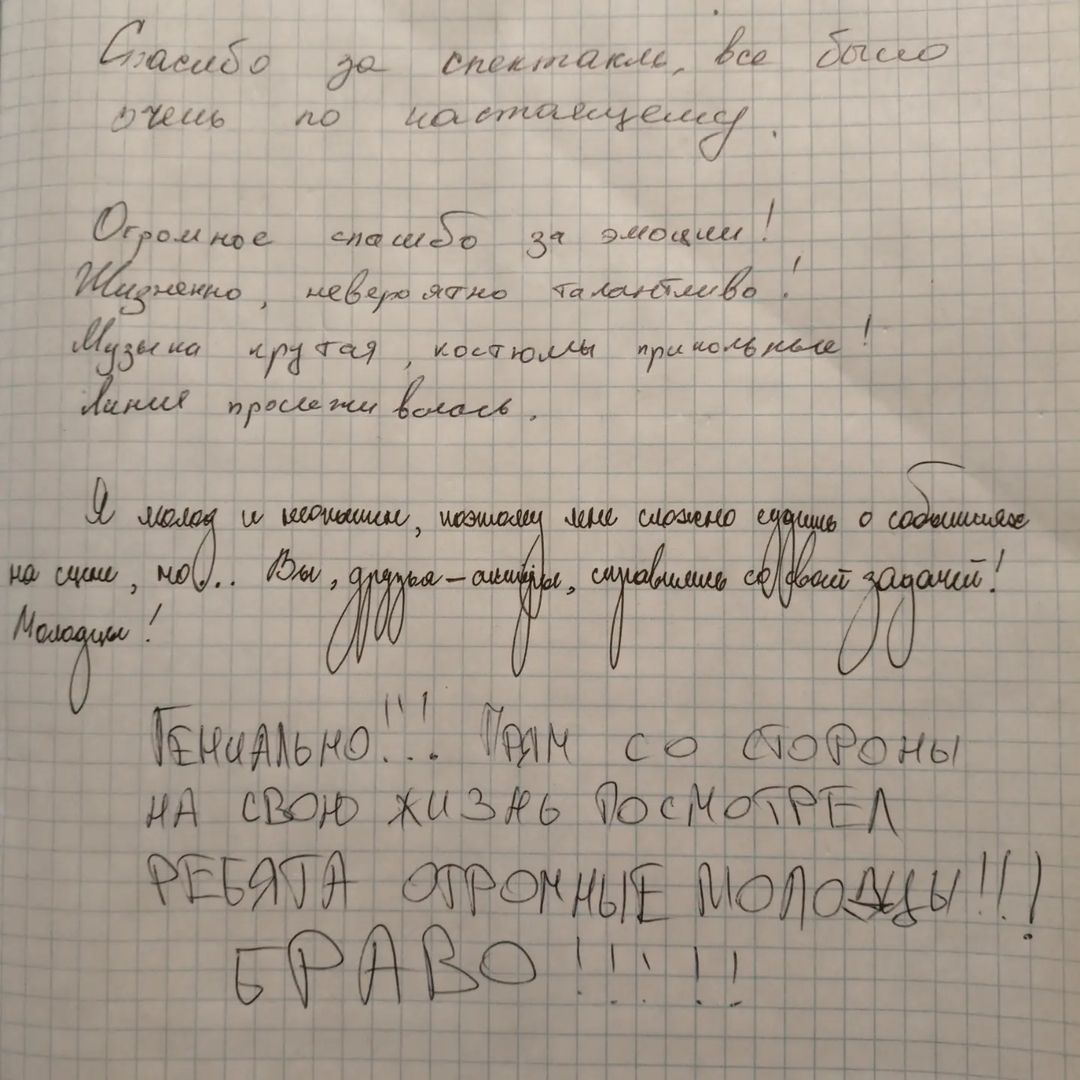 Спасибо за спектакль, все было
очень по настоящему.
Огромное спасибо за эмоции!
Жизненно, невероятно талантливо!
Музыка крутая, костюмы прикольные!
Линия прослеживалась.
Я молод и неопытен, поэтому мне сложно судить о событиях
на сцене, но... Вы, друзья-актёры, справились со своей задачей!
Молодцы!
ГЕНИАЛЬНО!!! ПРЯМ СО СТОРОНЫ
НА СВОЮ ЖИЗНЬ ПОСМОТРЕЛ
РЕБЯТА ОГРОМНЫЕ МОЛОДЦЫ!!!
БРАВО!!!!!